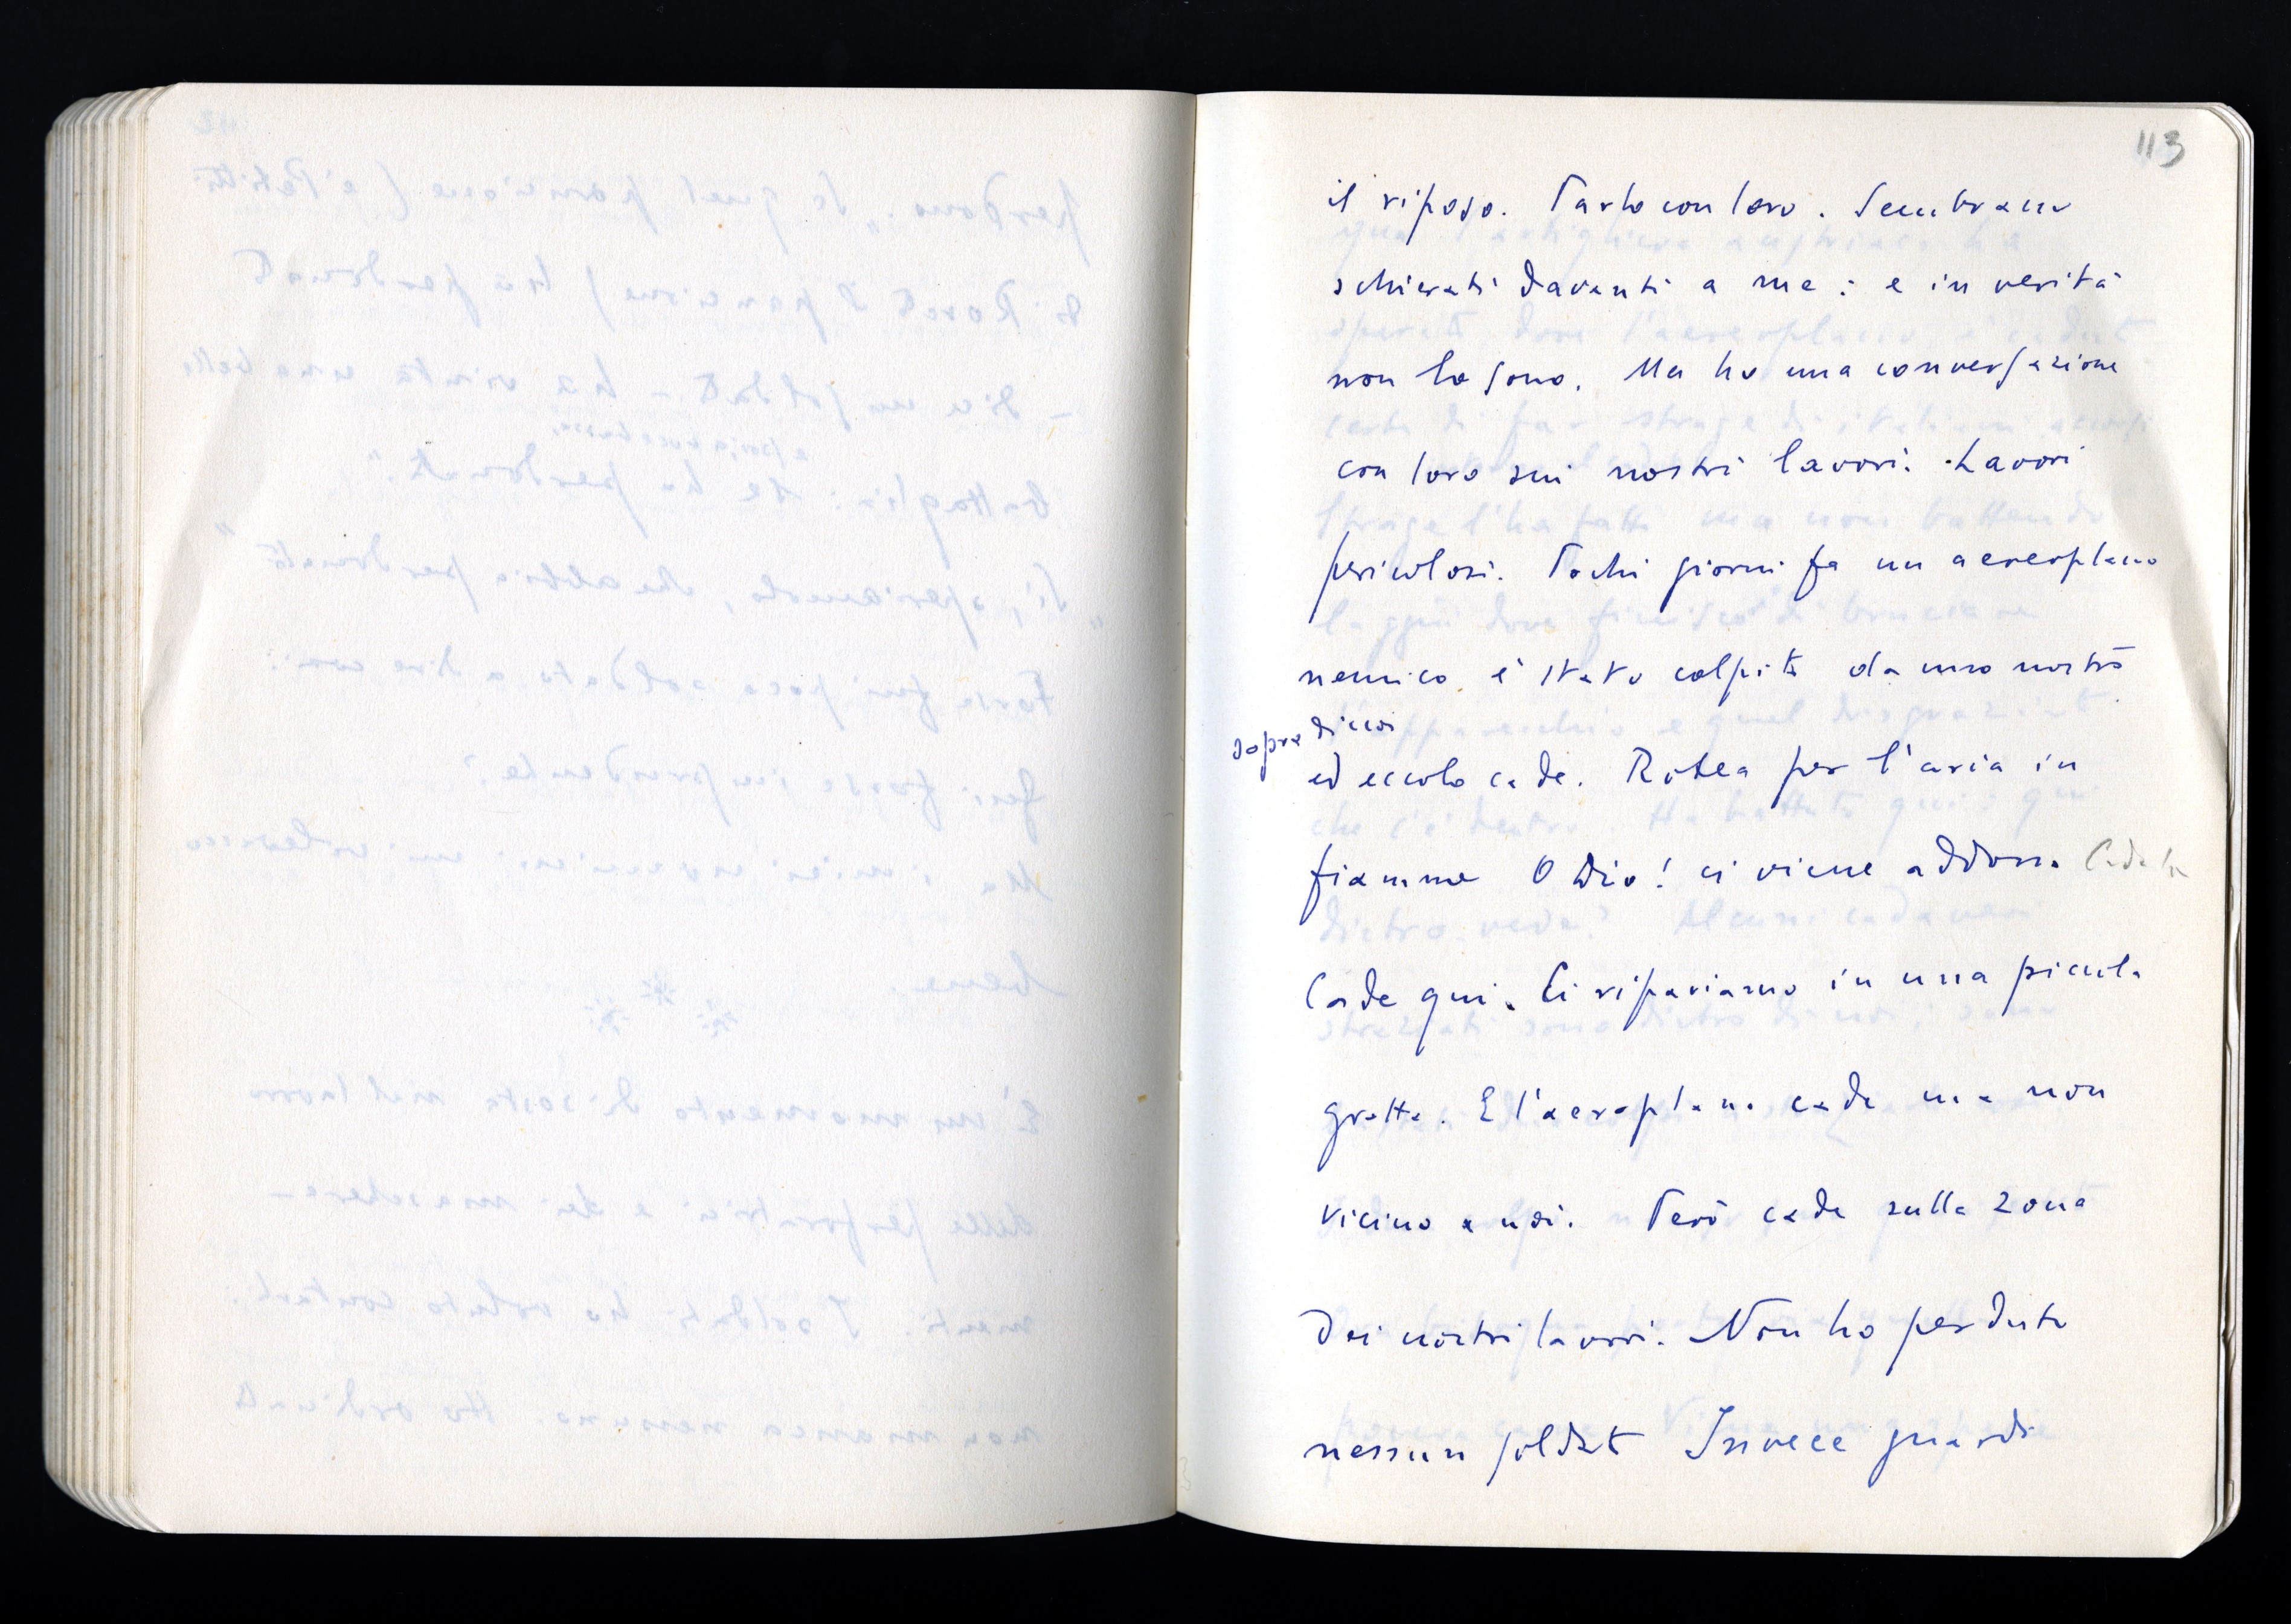 113
il riposo. Parlo con loro. Sembrano
schierati davanti a me: e in verità
non lo sono. Ma ho una conversazione
con loro sui nostri lavori. Lavori
pericolosi. Pochi giorni fa un aereoplano
nemico è stato colpito da uno nostro
sopra di noi
ed eccolo cade. Rotea per l'aria in
fiamme O Dio! ci viene addosso
Cade qui. Ci ripariamo in una piccola
grotta. E l'aeroplano cade ma non
vicino a noi. Però cade sulla zona
dei nostri lavori. Non ho perduto
nessun soldato Invece guardi